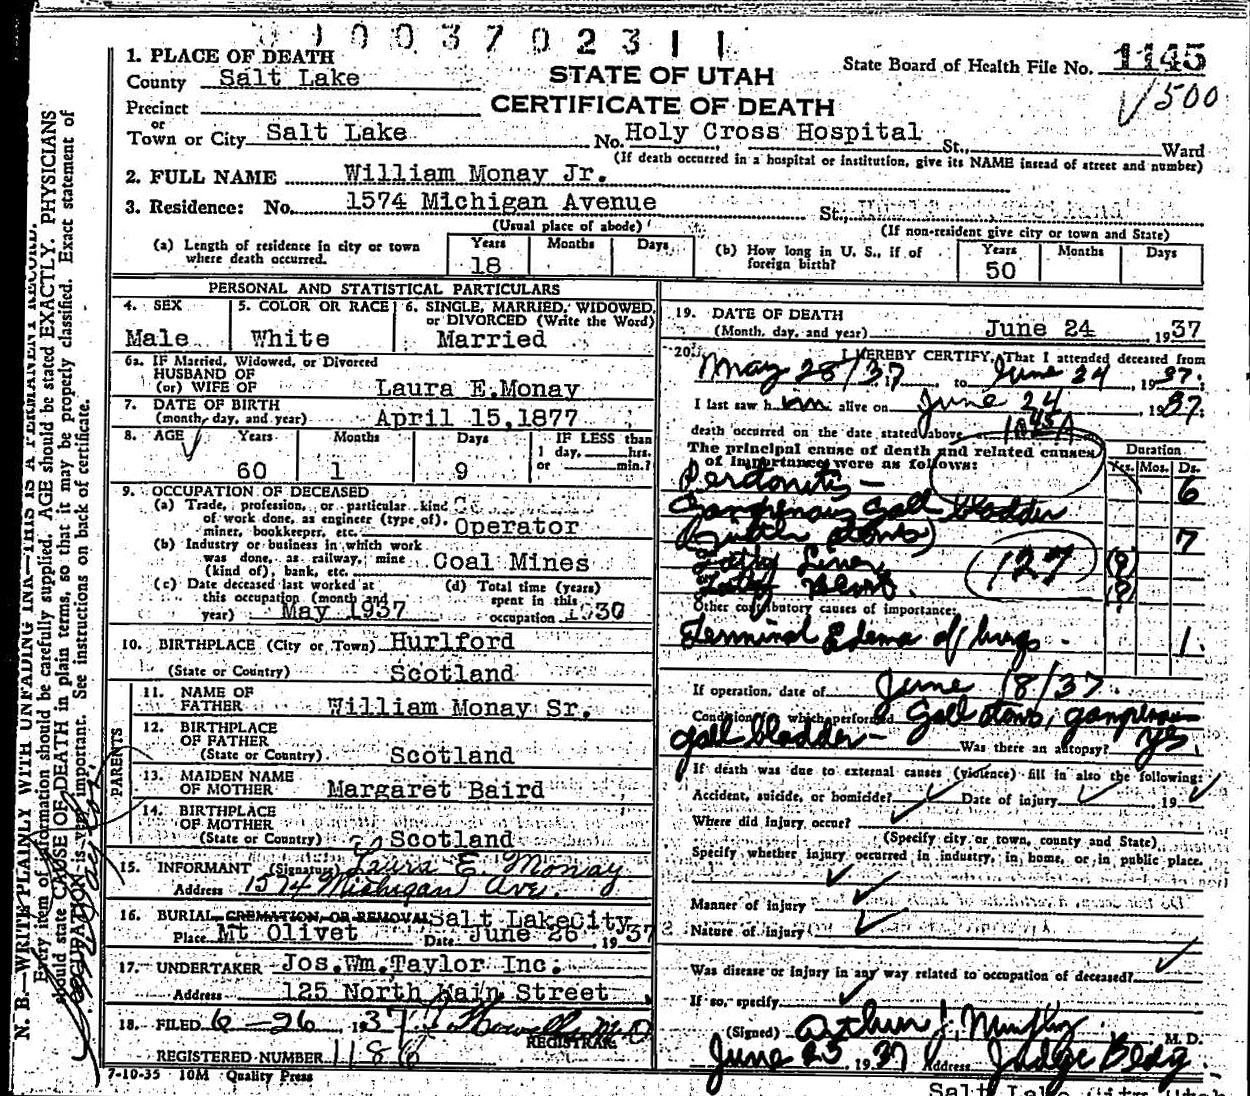 0 0 0 3 7 0 2 3 1 1
1. PLACE OF DEATH
County Salt Lake
Precinct
or
Town or City Salt Lake
STATE OF UTAH
CERTIFICATE OF DEATH
State Board of Health File No. 1145
√500
No. Holy Cross Hospital St., Ward
(If death occurred in a hospital or institution, give its NAME instead of street and number)
2. FULL NAME William Monay Jr.
3. Residence: No. 1574 Michigan Avenue St.,
(Usual place of abode) (If non-resident give city or town and State)
(a) Length of residence in city or town where death occurred. Years 18 Months Days
(b) How long in U. S., if of foreign birth? Years 50 Months Days
PERSONAL AND STATISTICAL PARTICULARS
4. SEX Male
5. COLOR OR RACE White
6. SINGLE, MARRIED, WIDOWED, or DIVORCED (Write the Word) Married
6a. IF Married, Widowed, or Divorced
HUSBAND OF
(or) WIFE OF Laura E.Monay
7. DATE OF BIRTH
(month, day, and year) April 15,1877
8. AGE Years 60 Months 1 Days 9 IF LESS than 1 day, hrs. or min.?
9. OCCUPATION OF DECEASED
(a) Trade, profession, or particular kind
of work done, as engineer (type of),
miner, bookkeeper, etc. Operator
(b) Industry or business in which work
was done, as railway, mine
(kind of), bank, etc. Coal Mines
(c) Date deceased last worked at
this occupation (month and
year) May 1937
(d) Total time (years)
spent in this
occupation 30
10. BIRTHPLACE (City or Town) Hurlford
(State or Country) Scotland
PARENTS
11. NAME OF
FATHER William Monay Sr.
12. BIRTHPLACE
OF FATHER
(State or Country) Scotland
13. MAIDEN NAME
OF MOTHER Margaret Baird
14. BIRTHPLACE
OF MOTHER
(State or Country) Scotland
15. INFORMANT (Signature) Laura E. Monay
Address 1574 Michigan Ave.
16. BURIAL, CREMATION, OR REMOVAL Salt LakeCity
Place Mt Olivet Date June 26, 1937
17. UNDERTAKER Jos.Wm.Taylor Inc.
Address 125 North Main Street
18. FILED 6-26, 1937 Howells M.D
REGISTRAR
REGISTERED NUMBER 1186
7-10-35 10M Quality Press
19. DATE OF DEATH
(Month, day, and year) June 24, 1937
20. I HEREBY CERTIFY, That I attended deceased from
May 28/37, to June 24, 1937;
I last saw him alive on June 24, 1937;
death occurred on the date stated above, at
The principal cause of death and related causes
of importance were as follows:
Duration
Yrs. Mos. Ds.
Peritonitis — 6
Gangrenous Gall bladder
(with stones) 7
Fatty Liver (?)
127
(?)
Other contributory causes of importance:
Terminal Edema of lungs - 1.
If operation, date of June 18/37
Condition for which performed Gall stones, gangrenous
gall bladder — Was there an autopsy? yes
If death was due to external causes (violence) fill in also the following:
Accident, suicide, or homicide? Date of injury 19
Where did injury occur?
(Specify city or town, county and State)
Specify whether injury occurred in industry, in home, or in public place.
Manner of injury
Nature of injury
Was disease or injury in any way related to occupation of deceased?
If so, specify
(Signed) Arthur J. Murphy M. D.
June 25 1937 Address Judge Bldg.
Salt Lake City Utah
N. B.—WRITE PLAINLY WITH UNFADING INK—THIS IS A PERMANENT RECORD.
Every item of information should be carefully supplied. AGE should be stated EXACTLY. PHYSICIANS
should state CAUSE OF DEATH in plain terms, so that it may be properly classified. Exact statement of
OCCUPATION is very important. See instructions on back of certificate.